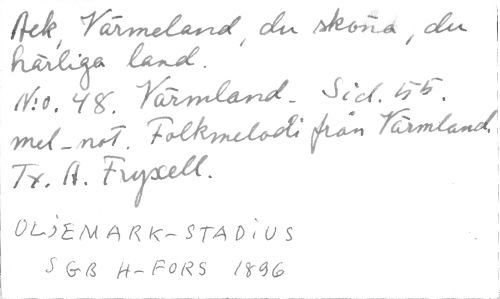 Ack, Värmeland, du sköna, du
härliga land.
N:o. 48. Värmland. Sid. 55.
mel-not. Folkmelodi från Värmland.
Tx. A. Fryxell.
OLJEMARK-STADIUS
SGB H-FORS 1896